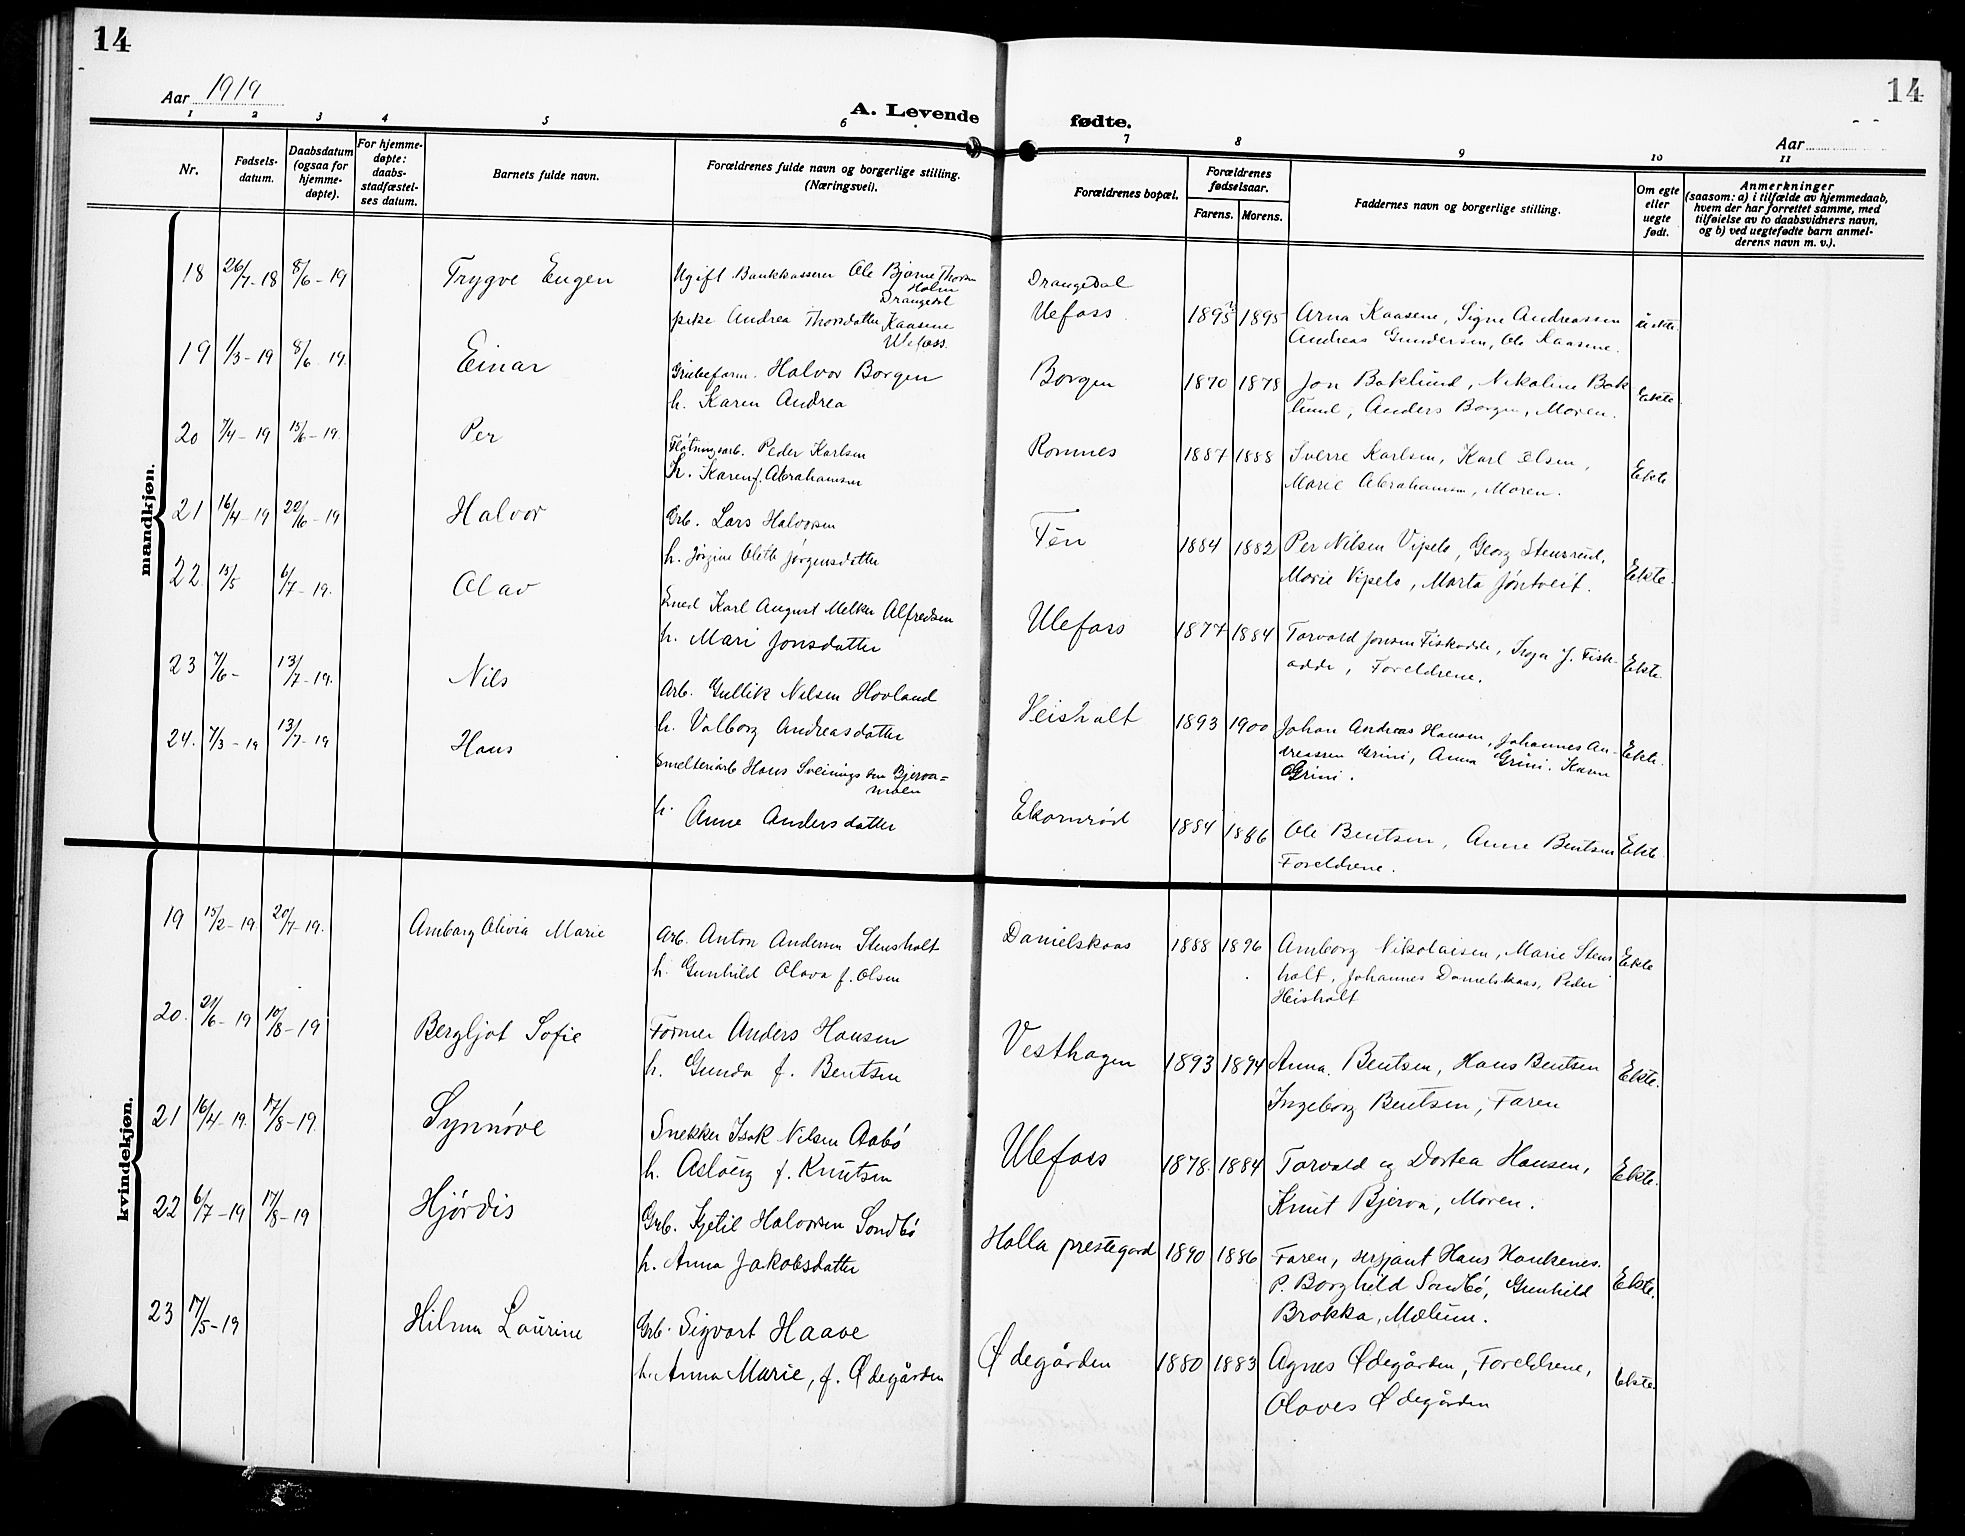 14
14
Aar 1919
A. Levende fødte.
Aar
1 2 3 4 5 6 7 8 9 10 11
Nr.
Fødsels-
datum.
Daabsdatum
(ogsaa for
hjemme-
døpte).
For hjemme-
døpte:
daabs-
stadfæstel-
ses datum.
Barnets fulde navn.
Forældrenes fulde navn og borgerlige stilling.
(Næringsvei).
Forældrenes bopæl.
Forældrenes
fødselsaar.
Farens. Morens.
Faddernes navn og borgerlige stilling.
Om egte
eller
uegte
født.
Anmerkninger
(saasom: a) i tilfælde av hjemmedaab,
hvem der har forrettet samme, med
tilføielse av to daabsvidners navn,
og b) ved uegtefødte barn anmel-
derens navn m. v.).
mandkjøn.
18 26/7-18 8/6-19 Trygve Eugen Ugift Bankkasserer Ole Bjarne Thorsen
Holm
Drangedal
Drangedal
pike Andrea Thorsdatter Kaasene
Ulefoss.
Ulefoss 1895 1895 Arna Kaasene, Signe Andreassen
Andreas Gundersen, Ole Kaasene. uekte.
19 1/3-19 8/6-19. Einar Grubeform. Halvor Borgen
h. Karen Andrea
Borgen 1870 1878 Jon Baklund, Nikoline Bak
lund, Anders Borgen, Moren. Ekte.
20 7/4-19 15/6-19. Per Fløtningsarb. Peder Karlsen
h. Karen f. Abrahamsen
Romnes 1887 1888 Sverre Karlsen, Karl Olsen,
Marie Abrahamsen, Moren. Ekte
21 16/4-19 22/6-19 Halvor Grb. Lars Halvorsen
h. Jørgine Oleth Jørgensdatter
Fen 1884 1882 Per Nilsen Vipeto, Georg Stensrud,
Marie Vipeto, Marta Jøntveit. Ekte.
22 15/5 6/7-19. Olav Smed Karl August Melker Alfredsen
h. Mari Jonsdatter
Ulefoss 1877 1884 Torvald Jonsen Fiskodde, Inga J. Fisk-
odde, Foreldrene. Ekte.
23 7/6- 13/7-19. Nils Arb. Gullik Nilsen Hovland
h. Valborg Andreasdatter
Heisholt 1893 1900 Johan Andreas Hansen, Johannes An-
dreassen Grini, Anna Grini. Karen
Grini. Ekte.
24. 7/3-19 13/7-19 Hans Smelteriarb Hans Sveinungsen Bjerva=
moen
h. Anne Andersdatter
Ekornrød 1884 1886 Ole Bentsen, Anne Bentsen
Foreldrene. Ekte.
kvindekjøn.
19 15/2-19. 20/7-19. Amborg Olivia Marie Arb. Anton Andersen Stensholt
h. Gunhild Olava f. Olsen
Danielskaas 1888 1896 Amborg Nikolaisen, Marie Stens
holt, Johannes Danielskaas, Peder
Heisholt Ekte
20. 21/6-19 10/8-19 Bergljot Sofie Former Anders Hansen
h. Gunda f. Bentsen
Vesthagen 1893 1894 Anna. Bentsen, Hans Bentsen
Ingeborg Bentsen, Faren Ekte.
21 16/4-19. 17/8-19. Synnøve Snekker Isak Nilsen Aabø
h. Aslaug f. Knutsen
Ulefoss 1878. 1884 Torvald og Dortea Hansen,
Knut Bjerva, Moren. Ekte.
22 6/7-19 17/8-19 Hjørdis Grb. Kjetil Halvorsen Sondbø
h. Anna Jakobsdatter
Holla prestegard 1890 1886 Faren, serjant Hans Haukenes.
P. Borghild Sondbø, Gunhild
Brokka, Mælum. Ekte.
23 17/5-19 Hilma Laurine Grb. Sigvart Haave
h. Anna Marie, f. Ødegården
Ødegården 1880 1883 Agnes Ødegården, Foreldrene,
Olaves Ødegården Ekte.